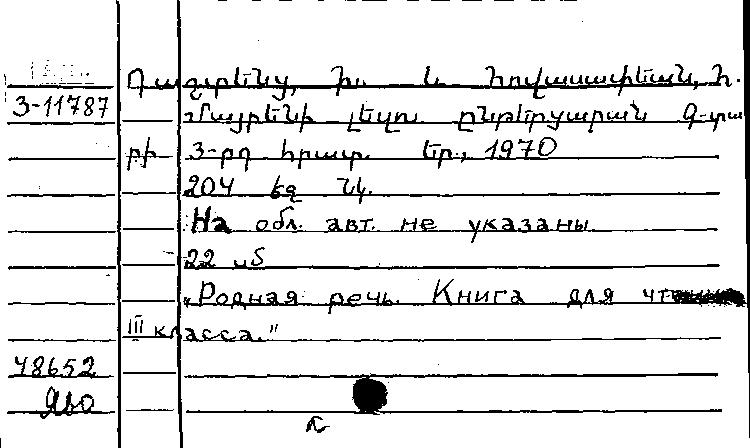 Դաշտենց, Խ. և Հովասափեան, Հ.
3-11787
Մայրենի լեզու. ընթերցարան 9-րդ տա
րի 3-րդ հրատ. Եր., 1970
204 էջ նկ.
На обл. авт. не указаны.
22 иб
"Родная речь. Книга для чт
III класса."
48652